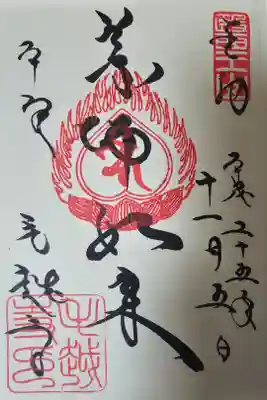 奉拝
平成二十五年
十一月五日
薬師如来
毛越寺